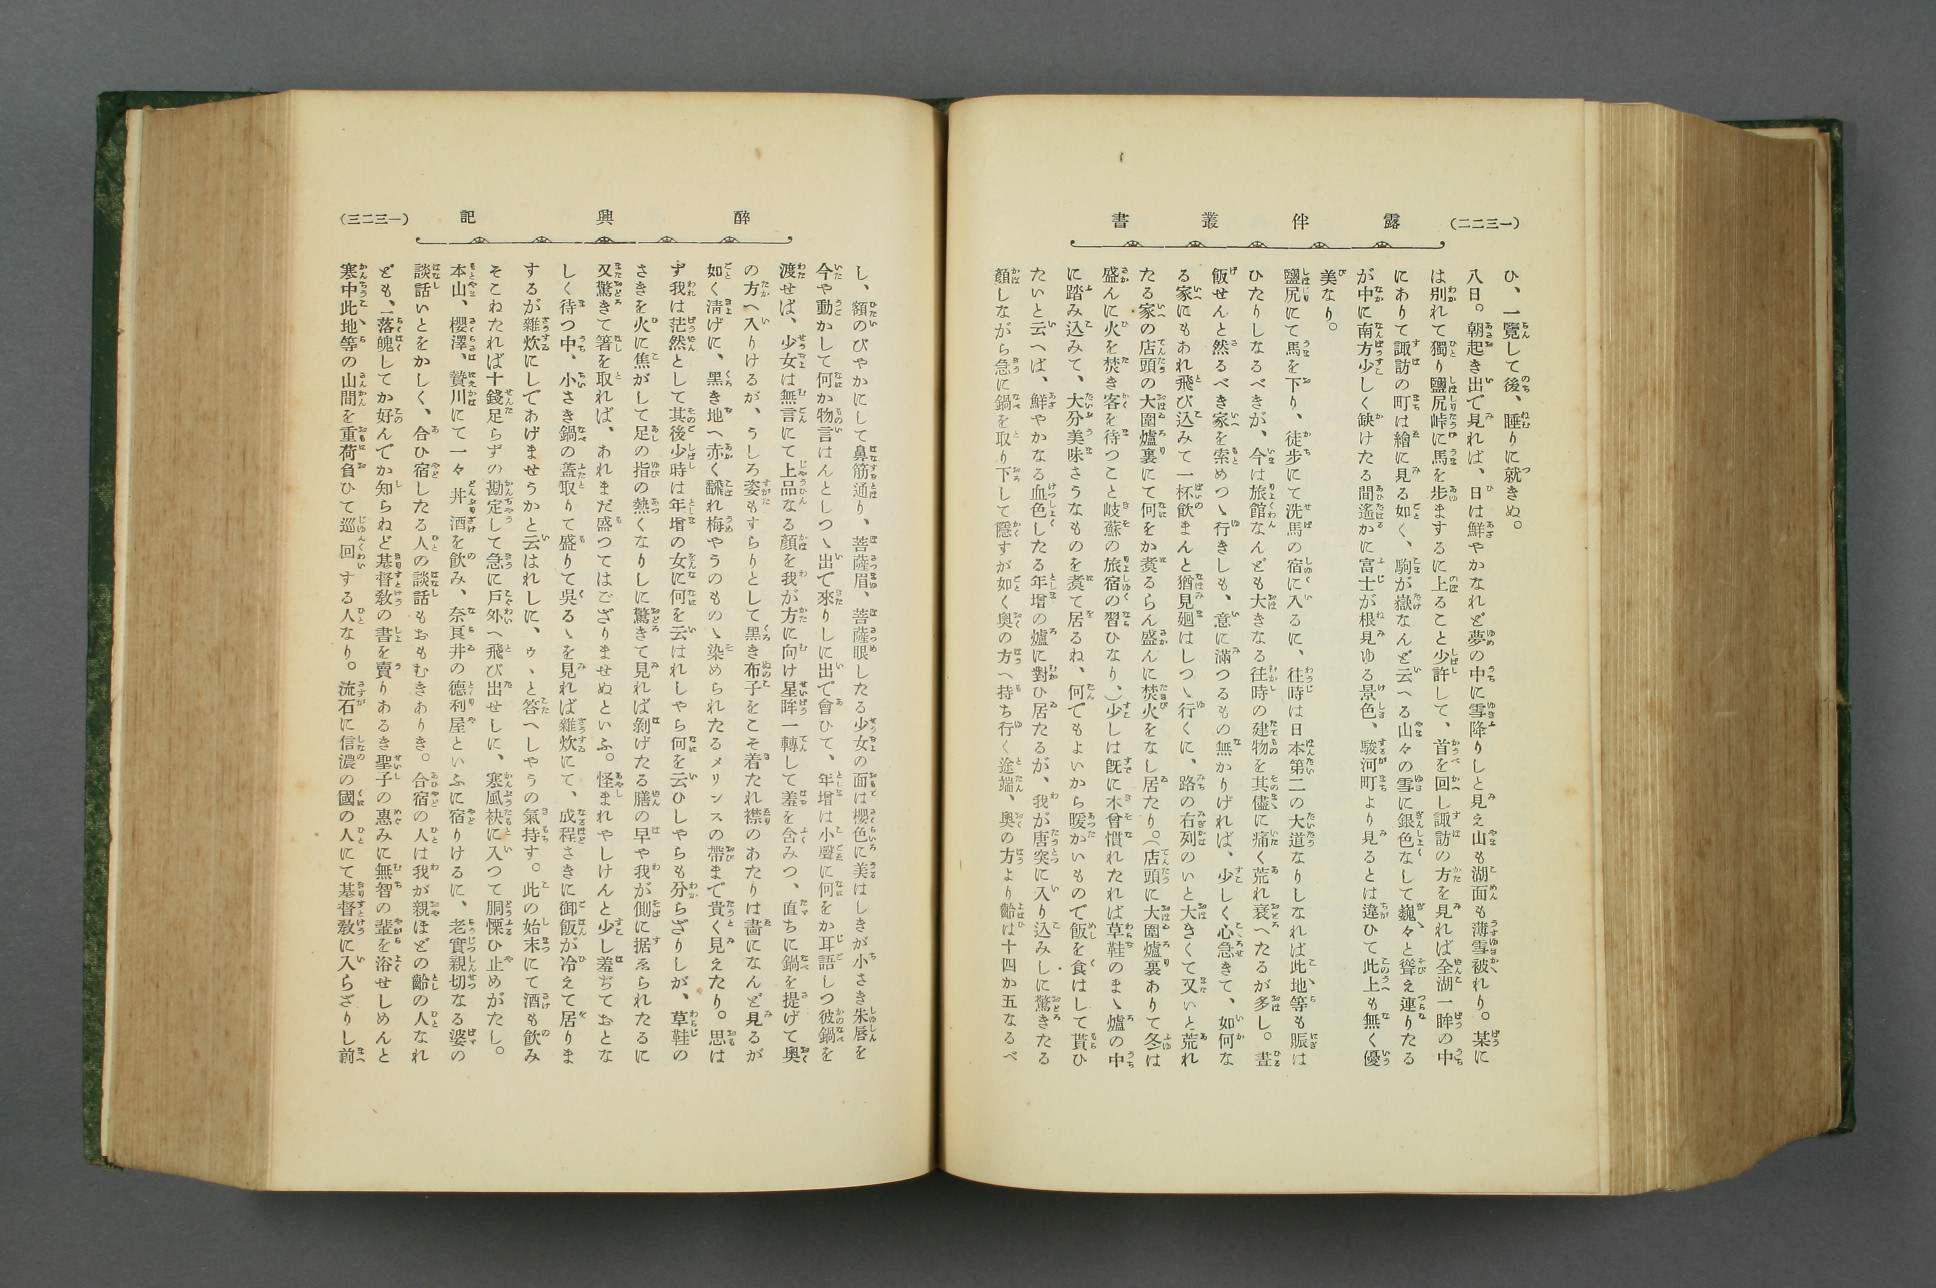 (一三二二)
露伴叢書
ひ、一覽して後、睡りに就きぬ。
八日。朝起き出で見れば、日は鮮やかなれど夢の中に雪降りしと見え山も湖面も薄雪被れり。某に
は別れて獨り鹽尻峠に馬を歩まするに上ること少許して、首を回し諏訪の方を見れば全湖一眸の中
にありて諏訪の町は繪に見る如く、駒が嶽なんど云へる山々の雪に銀色なして巍々と聳え連りたる
が中に南方少しく缺けたる間遙かに富士が根見ゆる景色、駿河町より見るとは違ひて此上も無く優
美なり。
鹽尻にて馬を下り、徒步にて洗馬の宿に入るに、往時は日本第二の大道なりしなれば此地等も賑は
ひたりしなるべきが、今は旅館なんども大きなる往時の建物を其儘に痛く荒れ衰へたるが多し。晝
飯せんと然るべき家を索めつゝ行きしも、意に滿つるもの無かりければ、少しく心急きて、如何な
る家にもあれ飛び込みて一杯飮まんと猶見廻はしつゝ行くに、路の右列のいと大きくて又いと荒れ
たる家の店頭の大圍爐裏にて何をか煑るらん盛んに焚火をなし居たり。(店頭に大圍爐裏ありて冬は
盛んに火を焚き客を待つこと岐蘇の旅宿の習ひなり、)少しは旣に木曾慣れたれば草鞋のまゝ爐の中
に踏み込みて、大分美味さうなものを煑て居るね、何でもよいから暖かいもので飯を食はして貰ひ
たいと云へば、鮮やかなる血色したる年增の爐に對ひ居たるが、我が唐突に入り込みしに驚きたる
顏しながら急に鍋を取り下して隱すが如く奧の方へ持ち行く途端、奧の方より齡は十四か五なるべ
醉興記
(一三二三)
し、額のびやかにして鼻筋通り、菩薩眉、菩薩眼したる少女の面は櫻色に美はしきが小さき朱唇を
今や動かして何か物言はんとしつゝ出で來りしに出で會ひて、年增は小聲に何をか耳語しつ彼鍋を
渡せば、少女は無言にて上品なる顏を我が方に向け星眸一轉して羞を含みつ、直ちに鍋を提げて奧
の方へ入りけるが、うしろ姿もすらりとして黑き布子をこそ着たれ襟のあたりは畵になんど見るが
如く淸げに、黑き地へ赤く飜れ梅やうのものゝ染められたるメリンスの帶まで貴く見えたり。思は
ず我は茫然として其後少時は年增の女に何を云はれしやら何を云ひしやらも分らざりしが、草鞋の
さきを火に焦がして足の指の熱くなりしに驚きて見れば剝げたる膳の早や我が側に据ゑられたるに
又驚きて箸を取れば、あれまだ盛つてはござりませぬといふ。怪まれやしけんと少し羞ぢておとな
しく待つ中、小さき鍋の蓋取りて盛りて吳るゝを見れば雜炊にて、成程さきに御飯が冷えて居りま
するが雜炊にしてあげませうかと云はれしに、ゥゝと答へしやうの氣持す。此の始末にて酒も飮み
そこねたれば十錢足らずの勘定して急に戶外へ飛び出せしに、寒風袂に入つて胴慄ひ止めがたし。
本山、櫻澤、贄川にて一々丼酒を飮み、奈良井の德利屋といふに宿りけるに、老實親切なる婆の
談話いとをかしく、合ひ宿したる人の談話もおもむきありき。合宿の人は我が親ほどの齡の人なれ
ども、落魄してか好んでか知らねど基督敎の書を賣りあるき聖子の惠みに無智の輩を浴せしめんと
寒中此地等の山間を重荷負ひて巡回する人なり。流石に信濃の國の人にて基督敎に入らざりし前